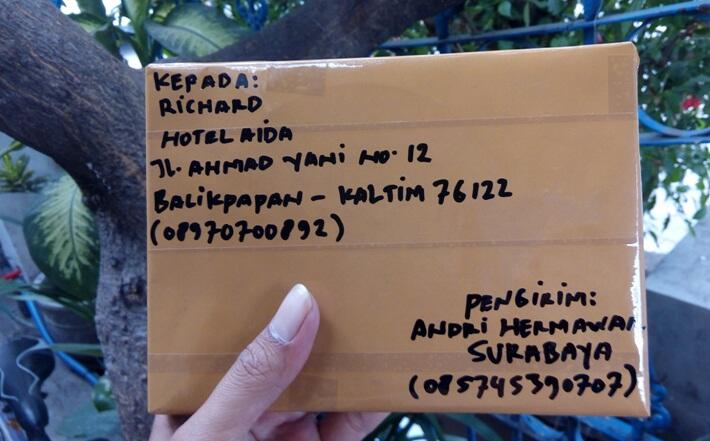 KEPADA:
RICHARD
HOTEL AIDA
Jl. AHMAD YANI NO. 12
BALIKPAPAN - KALTIM 76122
(08970700892)
PENGIRIM:
ANDRI HERMAWAN
SURABAYA
(085745390707)